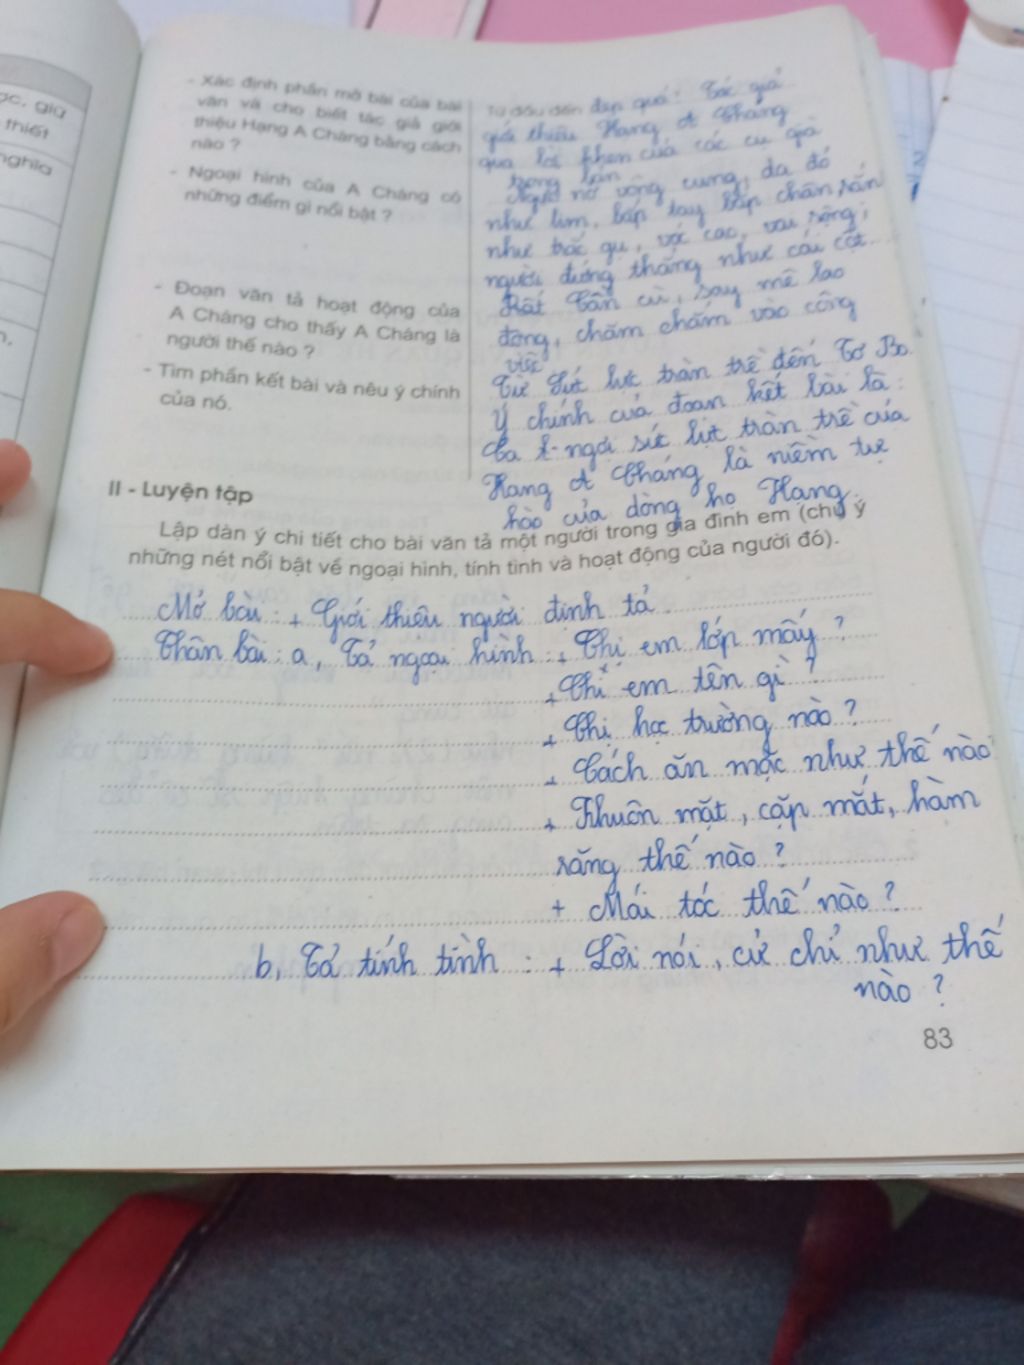 ọc, giữ
thiết
nghĩa
- Xác định phần mở bài của bài
văn và cho biết tác giả giới
thiệu Hạng A Cháng bằng cách
nào ?
Từ đầu đến đẹp quá! Tác giả
giới thiệu Hạng A Cháng
qua lời khen của các cụ già
trong bản
- Ngoại hình của A Cháng có
những điểm gì nổi bật ?
Ngực nở vòng cung, da đỏ
như lim, bắp tay bắp chân rắn
như trắc gụ, vóc cao, vai rộng;
người đứng thẳng như cái cột.
- Đoạn văn tả hoạt động của
A Cháng cho thấy A Cháng là
người thế nào ?
Rất cần cù, say mê lao
động, chăm chắm vào công
việc
- Tìm phần kết bài và nêu ý chính
của nó.
Từ Sức lực tràn trề đến Tơ Bo.
Ý chính của đoạn kết bài là:
Ca ngợi sức lực tràn trề của
Hạng A Cháng là niềm tự
hào của dòng họ Hạng.
II - Luyện tập
Lập dàn ý chi tiết cho bài văn tả một người trong gia đình em (chú ý
những nét nổi bật về ngoại hình, tính tình và hoạt động của người đó).
Mở bài: + Giới thiệu người định tả
Thân bài: a, Tả ngoại hình: + Chị em lớp mấy ?
+ Chị em tên gì ?
+ Chị học trường nào ?
+ Cách ăn mặc như thế nào
+ Khuôn mặt, cặp mắt, hàm
răng thế nào ?
+ Mái tóc thế nào ?
b, Tả tính tình : + Lời nói, cử chỉ như thế
nào ?
83